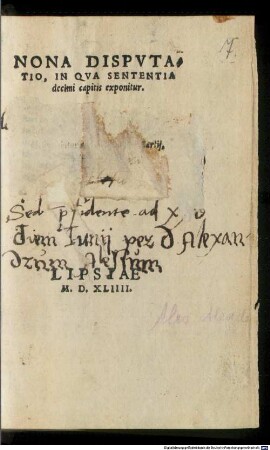 17.
NONA DISPVTA
TIO, IN QVA SENTENTIA
decimi capitis exponitur.
Sed pſidente ad X
diem Iunij per D Alexan
drum Aleſium
LIPSIAE
M. D. XLIIII.
Alex